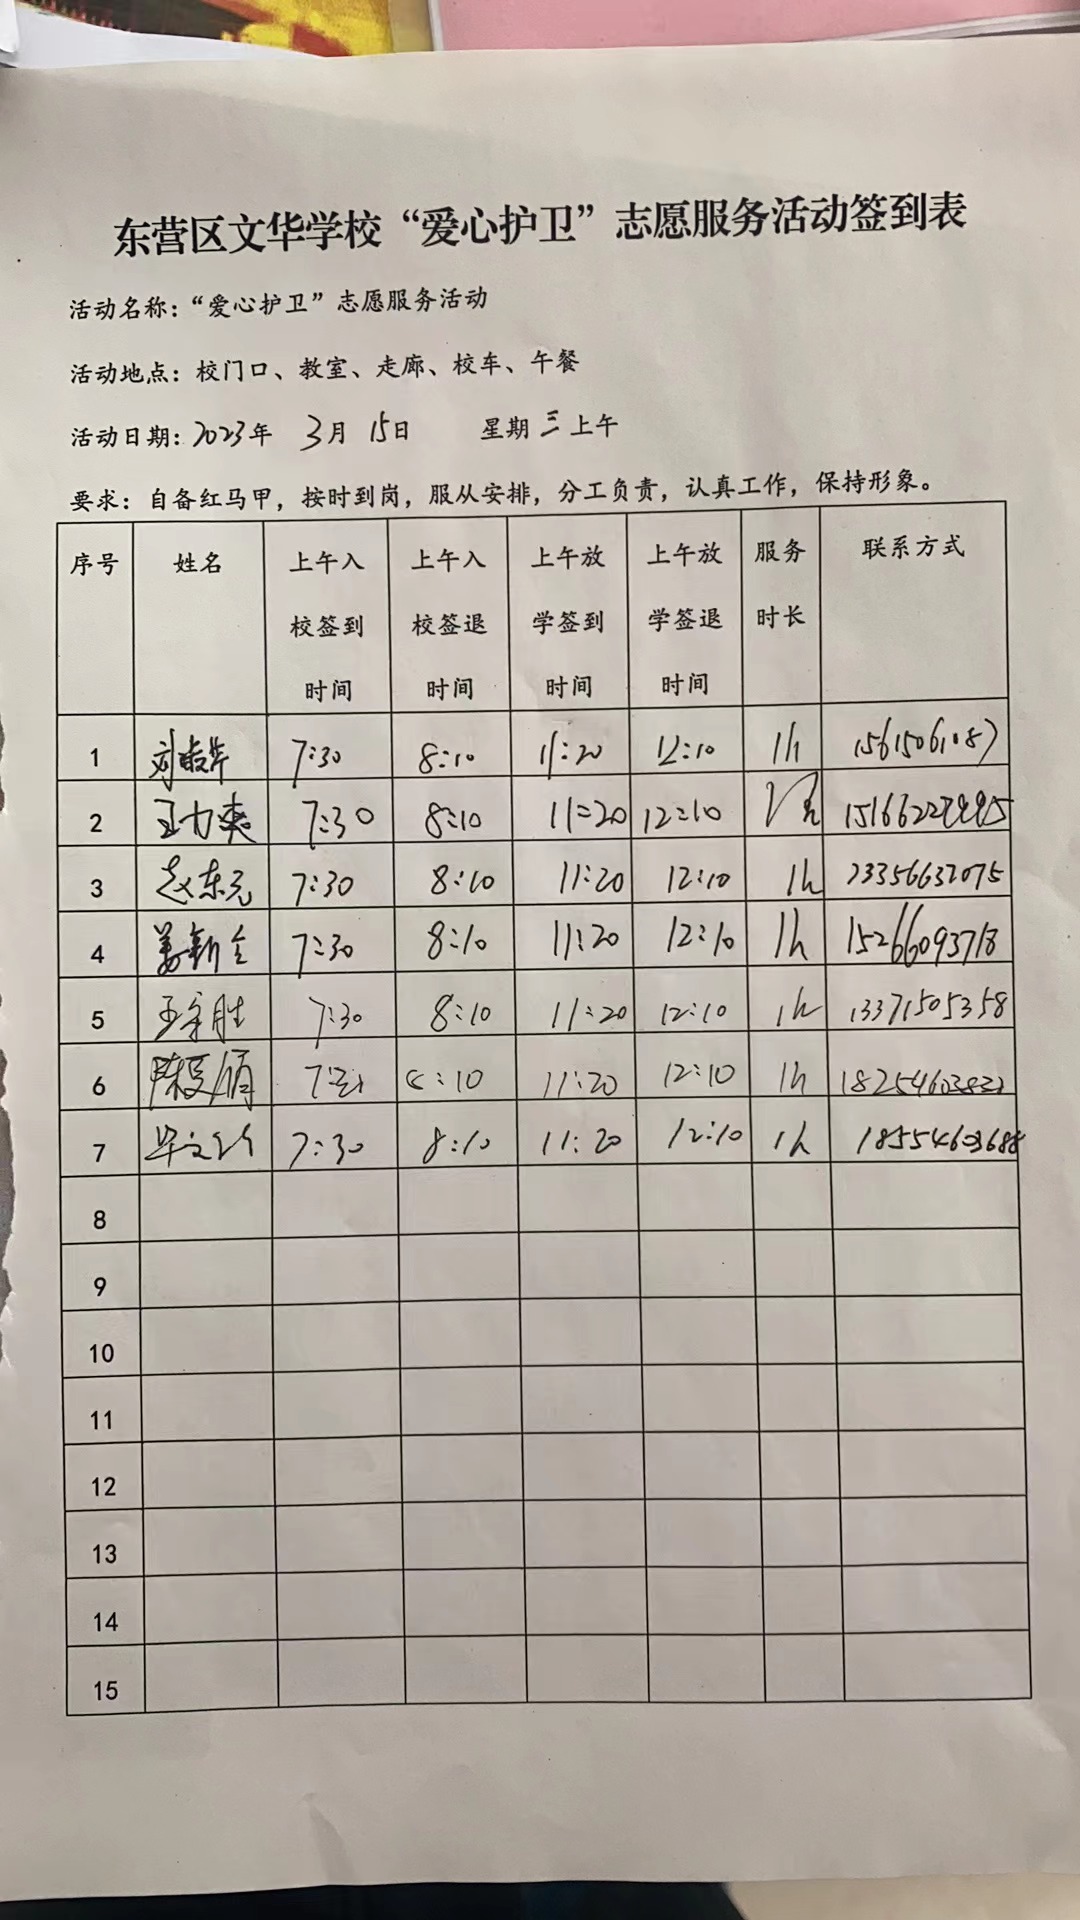 东营区文华学校“爱心护卫”志愿服务活动签到表
活动名称：“爱心护卫”志愿服务活动
活动地点：校门口、教室、走廊、校车、午餐
活动日期：2023年 3月 15日 星期 三 上午
要求：自备红马甲，按时到岗，服从安排，分工负责，认真工作，保持形象。
序号 姓名 上午入校签到时间 上午入校签退时间 上午放学签到时间 上午放学签退时间 服务时长 联系方式
1 7:30 8:10 11:20 12:10 1h 15615061087
2 王力爽 7:30 8:10 11:20 12:10
3 赵东元 7:30 8:10 11:20 12:10 1h
4 姜新全 7:30 8:10 11:20 12:10 1h 15266093718
5 王宗胜 7:30 8:10 11:20 12:10 1h 13371505358
6 8:10 11:20 12:10 1h
7 7:30 8:10 11:20 12:10 1h 18554603688
8
9
10
11
12
13
14
15